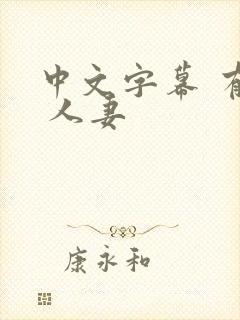 中文字幕
人妻
康永和